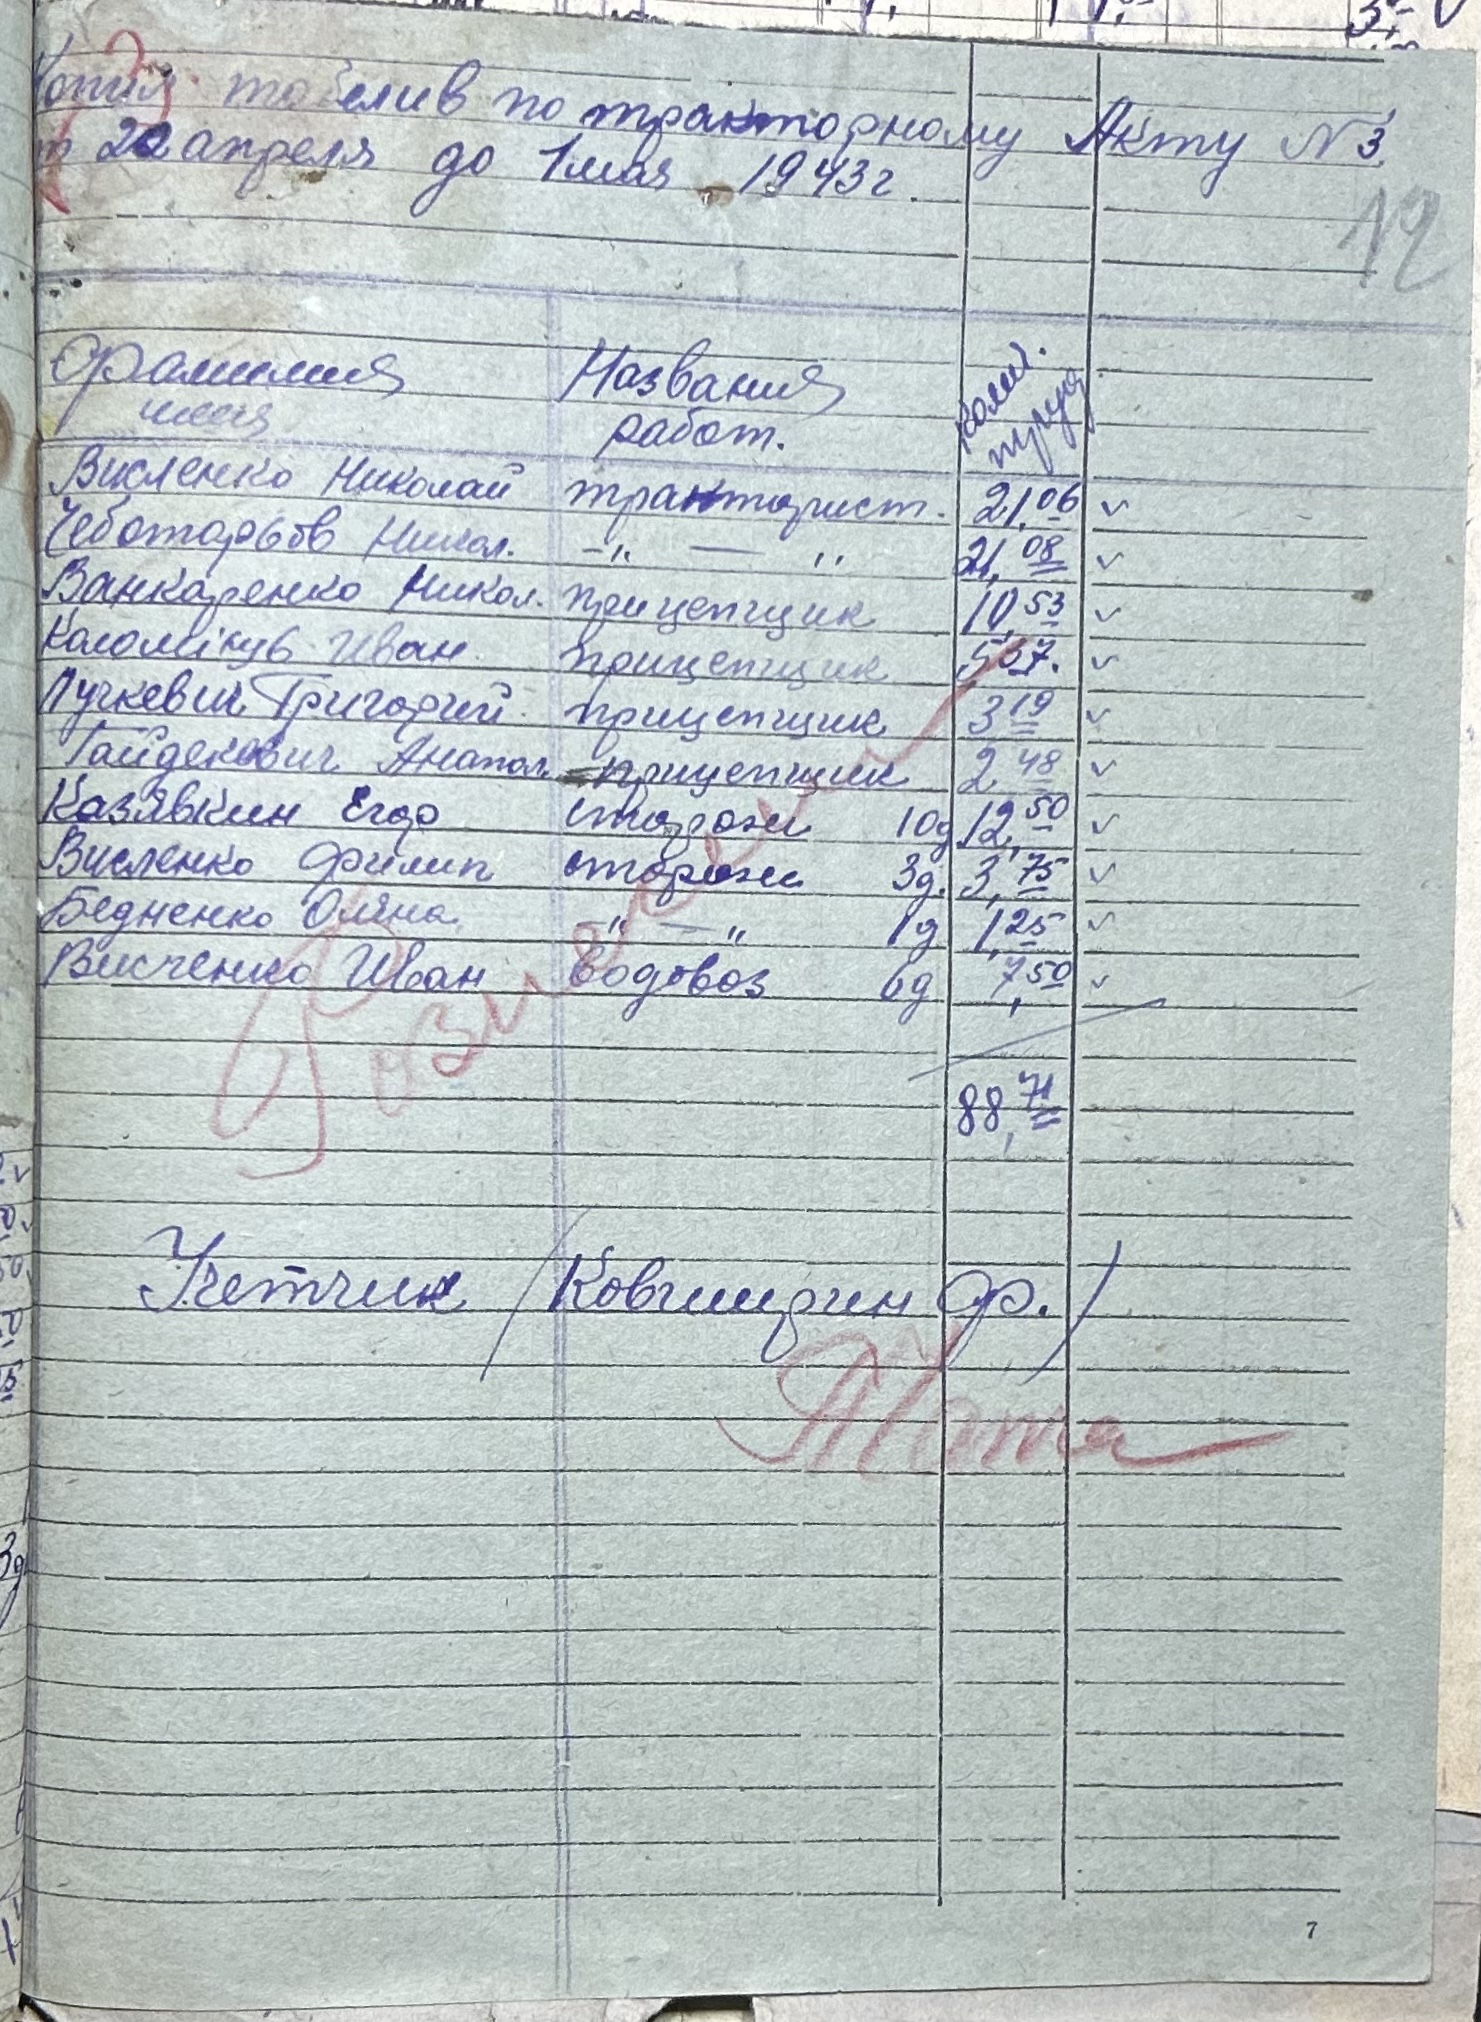 Копия табелив по тракторному Акту N 3
от 20 апреля до 1 мая 1943 г.
12
Фамилия Названия колич.
имя работ. труд
Висленко Николай тракторист. 21,06 ✓
Чеботарьов Никол. -„ — „ 21,08 ✓
Ванкаренко Никол. прицепщик 10,53 ✓
Коломікув Иван прицепщик 5 37. ✓
Пучкевич Григорий прицепщик 3 19 ✓
Гайдекович Анатол. прицепщик 2 48 ✓
Казявкин Егор сторож 10д 12,50 ✓
Висленко Филип сторож 3д. 3,75 ✓
Бедненко Оляна -„ — „ 1д 1,25 ✓
Висченко Иван водовоз 6д 7,50 ✓
88,71
Учетчик / Ковгиирин Ф. /
7